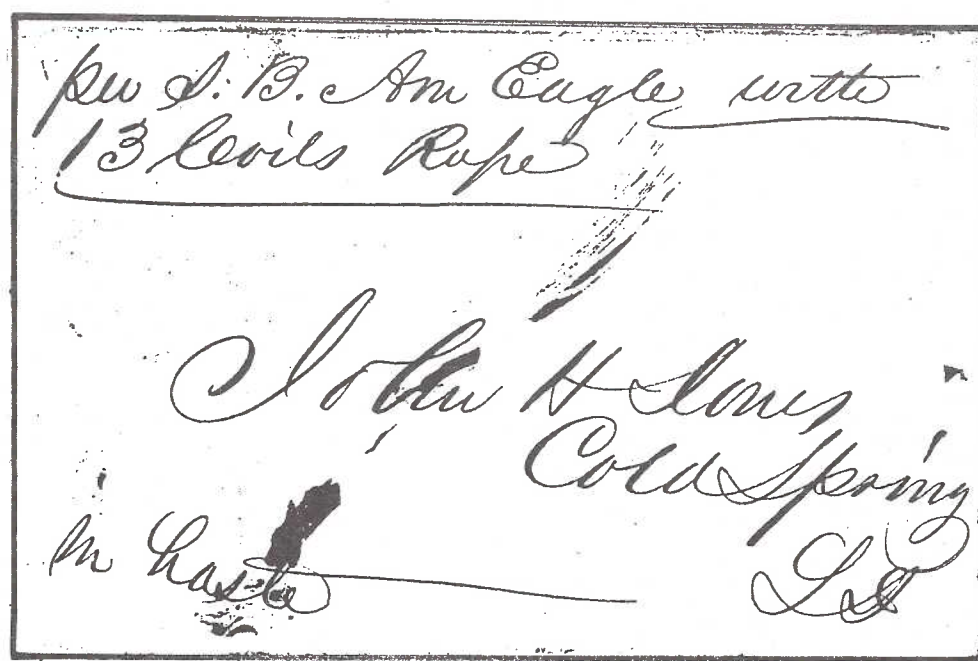 per S. B. Am Eagle with
13 Coils Rope
John H Jones
Cold Spring
in haste
L I